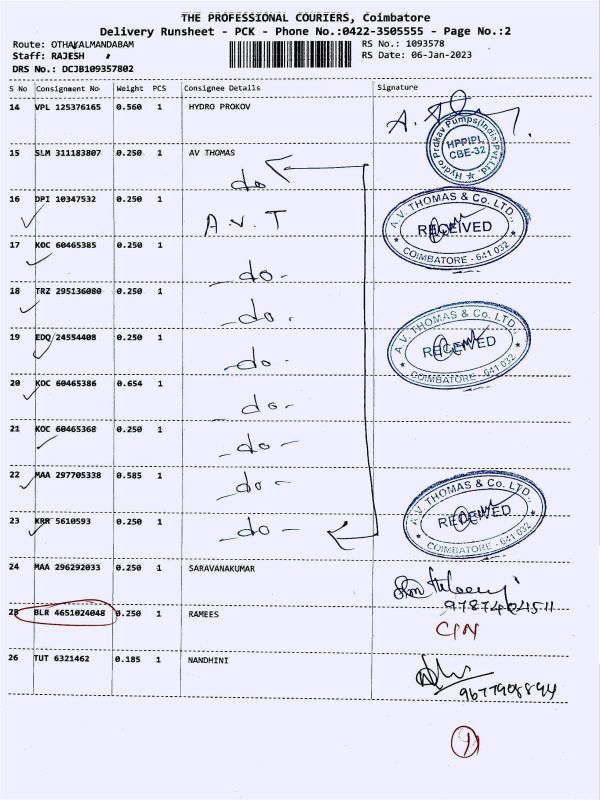 THE PROFESSIONAL COURIERS, Coimbatore
Delivery Runsheet - PCK - Phone No.:0422-3505555 - Page No.:2
Route: OTHAKALMANDABAM RS No.: 1093578
Staff: RAJESH RS Date: 06-Jan-2023
DRS No.: DCJB109357802
S No Consignment No Weight PCS Consignee Details Signature
14 VPL 125376165 0.560 1 HYDRO PROKOV
Hydro Prokav Pumps(India)Pvt.Ltd.
HPPIPL
CBE-32
15 SLM 311183807 0.250 1 AV THOMAS
do
16 DPI 10347532 0.250 1 A.V T
A.V. THOMAS & Co. LTD.,
RECEIVED
COIMBATORE - 641 032
17 KOC 60465385 0.250 1
-do-
18 TRZ 295136080 0.250 1
-do.
19 EDQ 24554408 0.250 1
-do-
A.V. THOMAS & Co. LTD.,
RECEIVED
COIMBATORE - 641 032
20 KOC 60465386 0.654 1
-do-
21 KOC 60465368 0.250 1
-do-
22 MAA 297705338 0.585 1
-do-
23 KRR 5610593 0.250 1
-do-
A.V. THOMAS & Co. LTD.,
RECEIVED
COIMBATORE - 641 032
24 MAA 296292033 0.250 1 SARAVANAKUMAR
9787404511
25 BLR 4651024048 0.250 1 RAMEES
CIN
26 TUT 6321462 0.185 1 NANDHINI
9677908894
1